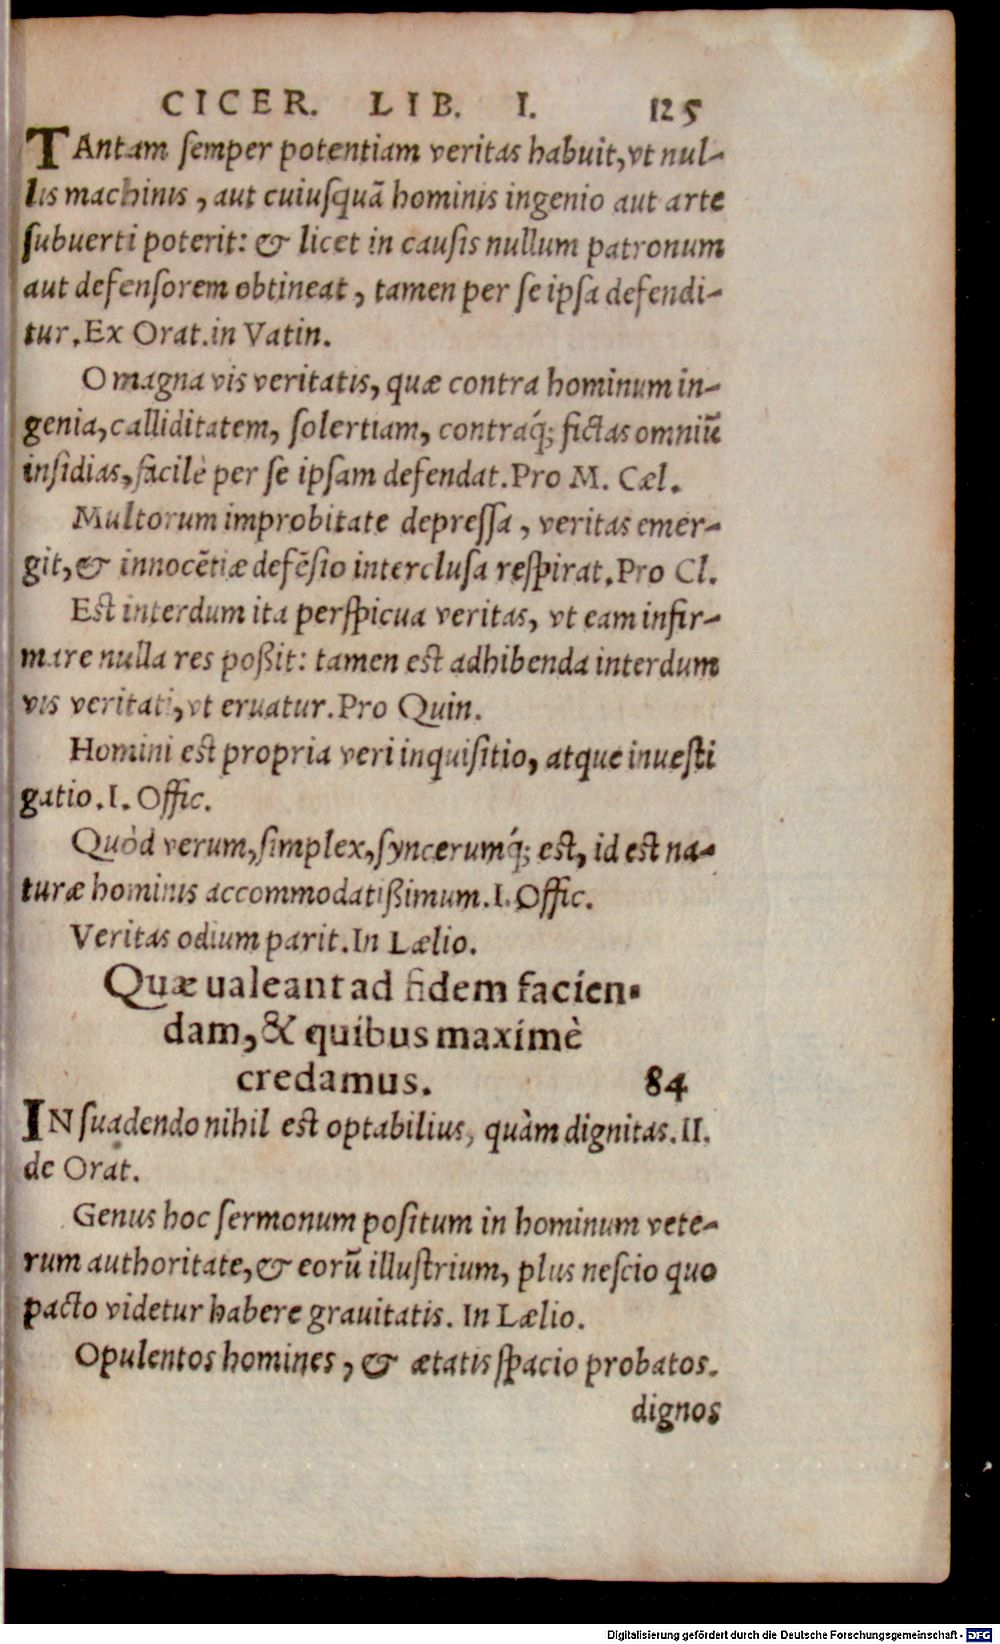 CICER. LIB. I. 125
TAntam semper potentiam veritas habuit, vt nul-
lis machinis, aut cuiusquã hominis ingenio aut arte
subuerti poterit: & licet in causis nullum patronum
aut defensorem obtineat, tamen per se ipsa defendi-
tur. Ex Orat. in Vatin.
O magna vis veritatis, quæ contra hominum in-
genia, calliditatem, solertiam, contraq́; fictas omniũ
insidias, facilè per se ipsam defendat. Pro M. Cæl.
Multorum improbitate depressa, veritas emer-
git, & innocẽtiæ defẽsio interclusa respirat. Pro Cl.
Est interdum ita perspicua veritas, vt eam infir-
mare nulla res poßit: tamen est adhibenda interdum
vis veritati, vt eruatur. Pro Quin.
Homini est propria veri inquisitio, atque inuesti
gatio. I. Offic.
Quòd verum, simplex, syncerumq́; est, id est na-
turæ hominis accommodatißimum. I. Offic.
Veritas odium parit. In Lælio.
Quæ ualeant ad fidem facien-
dam, & quibus maximè
credamus. 84
IN suadendo nihil est optabilius, quàm dignitas. II.
de Orat.
Genus hoc sermonum positum in hominum vete-
rum authoritate, & eorũ illustrium, plus nescio quo
pacto videtur habere grauitatis. In Lælio.
Opulentos homines, & ætatis spacio probatos.
dignos
Digitalisierung gefördert durch die Deutsche Forschungsgemeinschaft - DFG